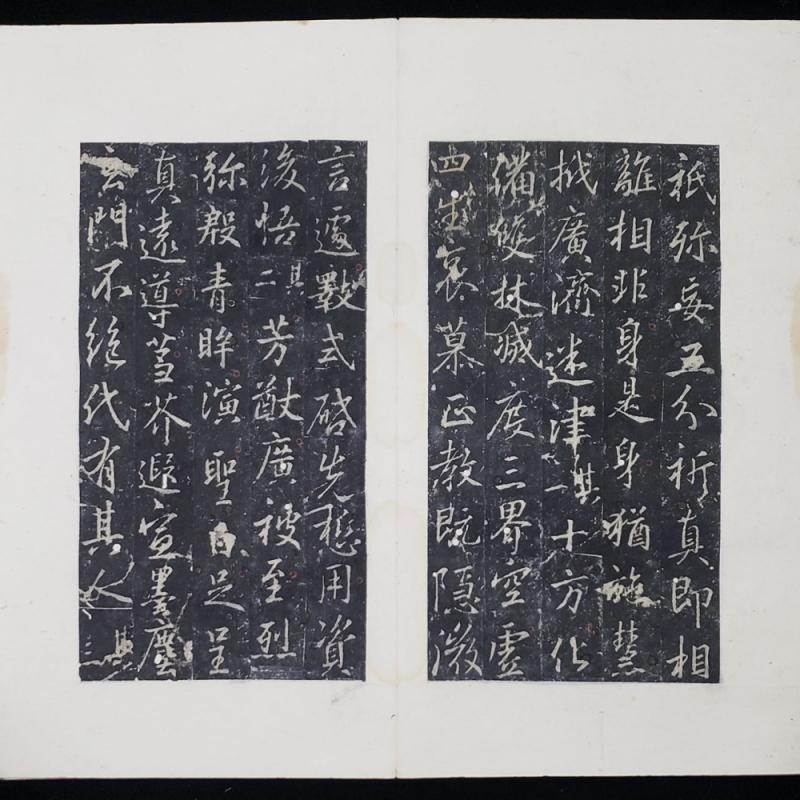 祇弥妄五分析真即相
離相非身是身猶施慧
栰廣濟迷津其一大方化
備雙林滅度三界空虛
四生哀慕正教既隱微
言遽斁式啓先悊用資
後悟其二芳猷廣被至烈
弥殷青眸演聖白足呈
真遠導芥遐宣墨塵
玄門不絕代有其人其三